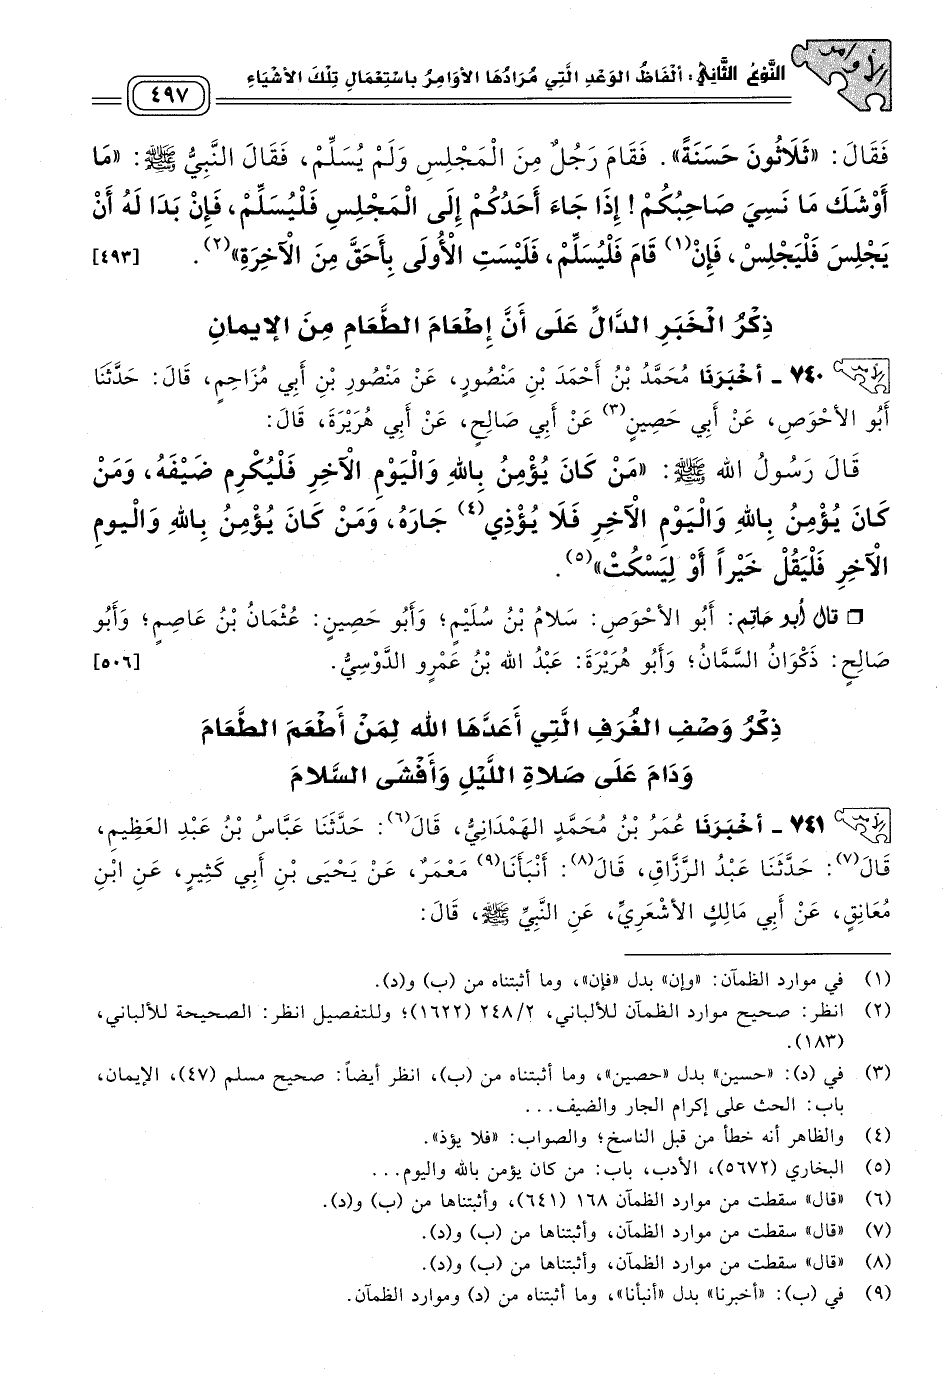 الأوامر
النَّوْعُ الثَّانِي: ألْفَاظُ الوَعْدِ الَّتِي مُرَادُهَا الأوَامِرُ بِاسْتِعْمَالِ تِلْكَ الأشْيَاءِ
٤٩٧
فَقَالَ: «ثَلَاثُونَ حَسَنَةً». فَقَامَ رَجُلٌ مِنَ الْمَجْلِسِ وَلَمْ يُسَلِّمْ، فَقَالَ النَّبِيُّ ﷺ: «مَا
أَوْشَكَ مَا نَسِيَ صَاحِبُكُمْ! إِذَا جَاءَ أَحَدُكُمْ إِلَى الْمَجْلِسِ فَلْيُسَلِّمْ، فَإِنْ بَدَا لَهُ أَنْ
يَجْلِسَ فَلْيَجْلِسْ، فَإِنْ(١) قَامَ فَلْيُسَلِّمْ، فَلَيْسَتِ الْأُولَى بِأَحَقَّ مِنَ الْآخِرَةِ»(٢). [٤٩٣]
ذِكْرُ الْخَبَرِ الدَّالِّ عَلَى أَنَّ إِطْعَامَ الطَّعَامِ مِنَ الإيمانِ
٧٤٠ - أخْبَرَنَا مُحَمَّدُ بْنُ أَحْمَدَ بْنِ مَنْصُورٍ، عَنْ مَنْصُورِ بْنِ أَبِي مُزَاحِمٍ، قَالَ: حَدَّثَنَا
أَبُو الأحْوَصِ، عَنْ أَبِي حَصِينٍ(٣) عَنْ أَبِي صَالِحٍ، عَنْ أَبِي هُرَيْرَةَ، قَالَ:
قَالَ رَسُولُ الله ﷺ: «مَنْ كَانَ يُؤْمِنُ بِاللهِ وَالْيَوْمِ الْآخِرِ فَلْيُكْرِم ضَيْفَهُ، وَمَنْ
كَانَ يُؤْمِنُ بِاللهِ وَالْيَوْمِ الْآخِرِ فَلَا يُؤْذِي(٤) جَارَهُ، وَمَنْ كَانَ يُؤْمِنُ بِاللهِ وَالْيومِ
الْآخِرِ فَلْيَقُلْ خَيْراً أَوْ لِيَسْكُتْ»(٥).
❒ قال أبو حاتم: أَبُو الأحْوَصِ: سَلامُ بْنُ سُلَيْمٍ؛ وَأَبُو حَصِينٍ: عُثْمَانُ بْنُ عَاصِمٍ؛ وَأَبُو
صَالِحٍ: ذَكْوَانُ السَّمَّانُ؛ وَأَبُو هُرَيْرَةَ: عَبْدُ الله بْنُ عَمْرٍو الدَّوْسِيُّ. [٥٠٦]
ذِكْرُ وَصْفِ الغُرَفِ الَّتِي أَعَدَّهَا الله لِمَنْ أَطْعَمَ الطَّعَامَ
وَدَامَ عَلَى صَلاةِ اللَّيْلِ وَأَفْشَى السَّلامَ
٧٤١ - أخْبَرَنَا عُمَرُ بْنُ مُحَمَّدٍ الهَمْدَانِيُّ، قَالَ(٦): حَدَّثَنَا عَبَّاسُ بْنُ عَبْدِ العَظِيمِ،
قَالَ(٧): حَدَّثَنَا عَبْدُ الرَّزَّاقِ، قَالَ(٨): أَنْبَأَنَا(٩) مَعْمَرٌ، عَنْ يَحْيَى بْنِ أَبِي كَثِيرٍ، عَنِ ابْنِ
مُعَانِقٍ، عَنْ أَبِي مَالِكٍ الأشْعَرِيِّ، عَنِ النَّبِيِّ ﷺ، قَالَ:
(١) في موارد الظمآن: «وإن» بدل «فإن»، وما أثبتناه من (ب) و(د).
(٢) انظر: صحيح موارد الظمآن للألباني، ٢/ ٢٤٨ (١٦٢٢)؛ وللتفصيل انظر: الصحيحة للألباني،
(١٨٣).
(٣) في (د): «حسين» بدل «حصين»، وما أثبتناه من (ب)، انظر أيضاً: صحيح مسلم (٤٧)، الإيمان،
باب: الحث على إكرام الجار والضيف...
(٤) والظاهر أنه خطأ من قبل الناسخ؛ والصواب: «فلا يؤذ».
(٥) البخاري (٥٦٧٢)، الأدب، باب: من كان يؤمن بالله واليوم...
(٦) «قال» سقطت من موارد الظمآن ١٦٨ (٦٤١)، وأثبتناها من (ب) و(د).
(٧) «قال» سقطت من موارد الظمآن، وأثبتناها من (ب) و(د).
(٨) «قال» سقطت من موارد الظمآن، وأثبتناها من (ب) و(د).
(٩) في (ب): «أخبرنا» بدل «أنبأنا»، وما أثبتناه من (د) وموارد الظمآن.